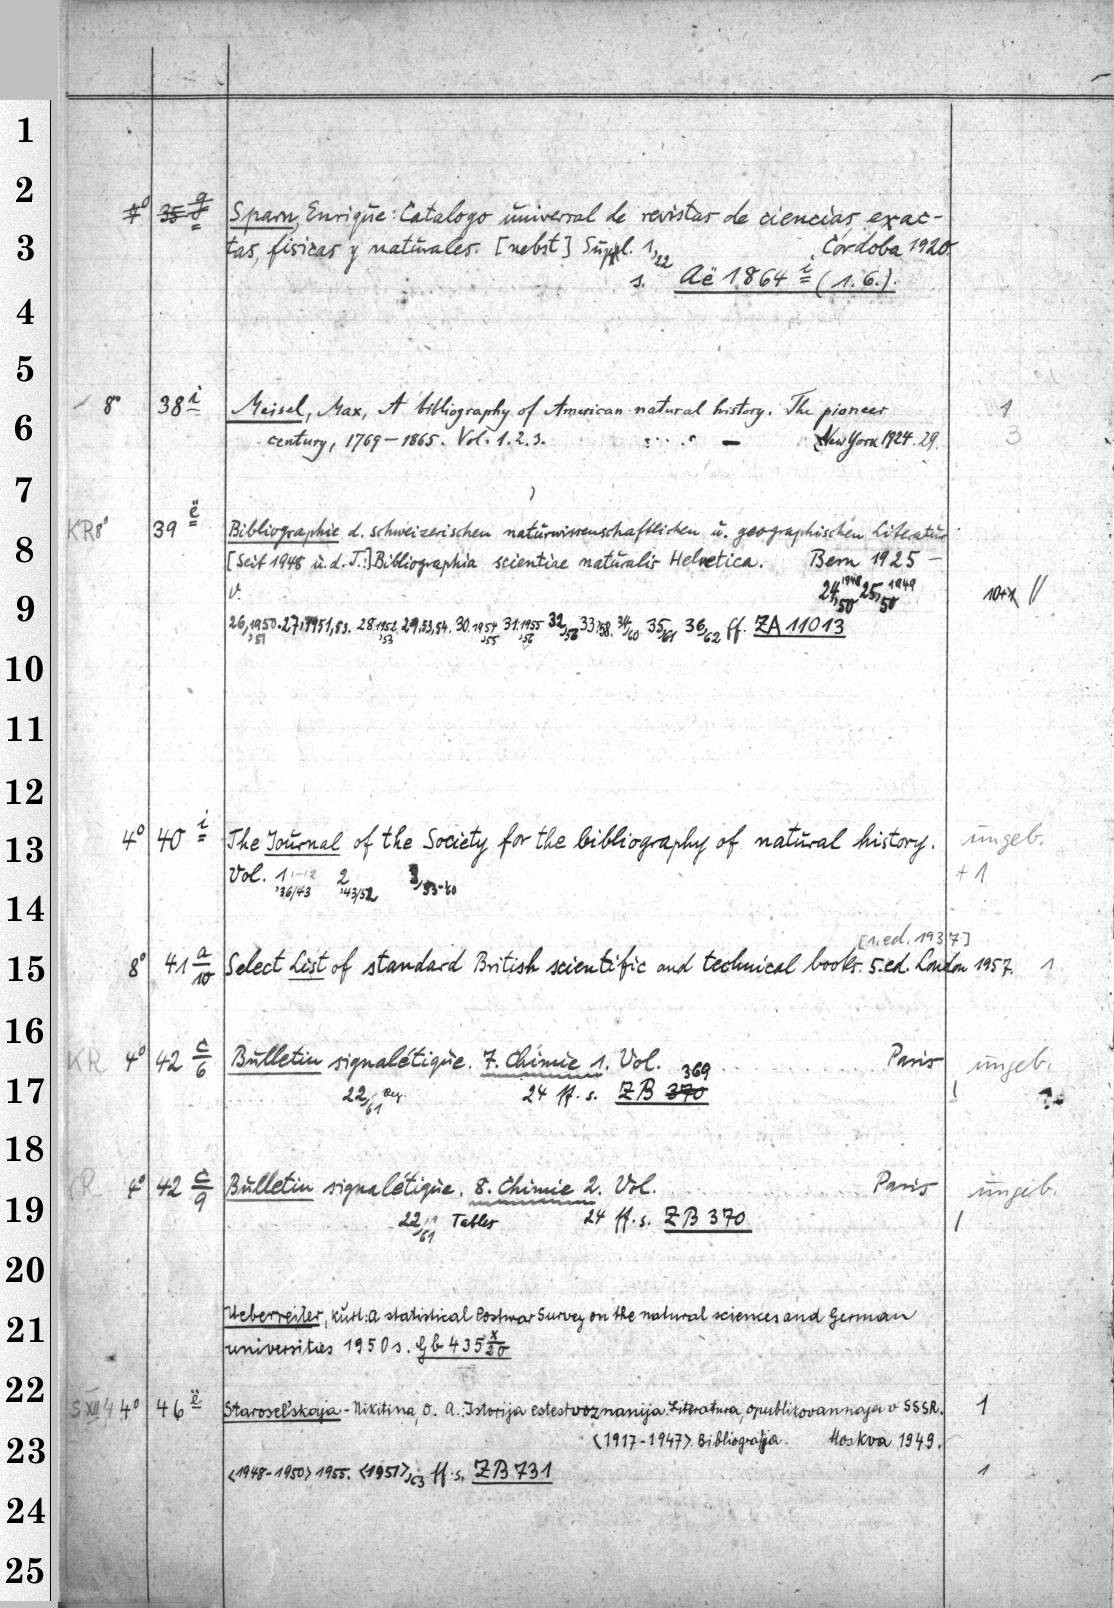 1
2
4° 35 g Sparn, Enrique: Catalogo universal de revistas de ciencias exac-
3 tas, fisicas y naturales. [nebst] Suppl. 1,22 Córdoba 1920.
s. Aë 1864 i (1.6.).
4
5
8° 38 i Meisel, Max, A bibliography of American natural history. The pioneer 1
6 century, 1769-1865. Vol. 1.2.3. New York 1924.29. 3
7
KR 8° 39 ë Bibliographie d. schweizerischen naturwissenschaftlichen u. geographischen Literatur
8 [Seit 1948 u.d.T.:] Bibliographia scientiae naturalis Helvetica. Bern 1925 -
24,1948,50 25,1949,50
9 26,1950,51. 27,1951,53. 28,1952,53 29,53,54. 30,1954,55 31,1955,56 32/56 33,58. 34/60 35/61 36/62 ff. ZA 11013
10
11
12
4° 40 i The Journal of the Society for the bibliography of natural history. ungeb.
13 Vol. 1,36/43 2,43/52 3/53-60 + 1
14
[1.ed. 1937]
15 8° 41 a/10 Select List of standard British scientific and technical books. 5.ed. London 1957. 1
16
KR 4° 42 c/6 Bulletin signalétique. 7. Chimie 1. Vol. Paris ungeb.
17 22,61 24 ff. s. ZB 370 369
18
KR 4° 42 c/9 Bulletin signalétique. 8. Chimie 2. Vol. Paris ungeb.
19 22,61 Tables 24 ff. s. ZB 370
20
Ueberreiter, Kurt: A statistical Postwar Survey on the natural sciences and German
21 universities 1950 s. Gb 435 x/20
22 4° 46 ë Starosel'skaja-Nikitina, O. A.: Istorija estestvoznanija. Literatura, opublikovannaja v SSSR. 1
23 <1917-1947> Bibliografija. Moskva 1949.
<1948-1950> 1955. <1951>,63 ff. s. ZB 731 1
24
25